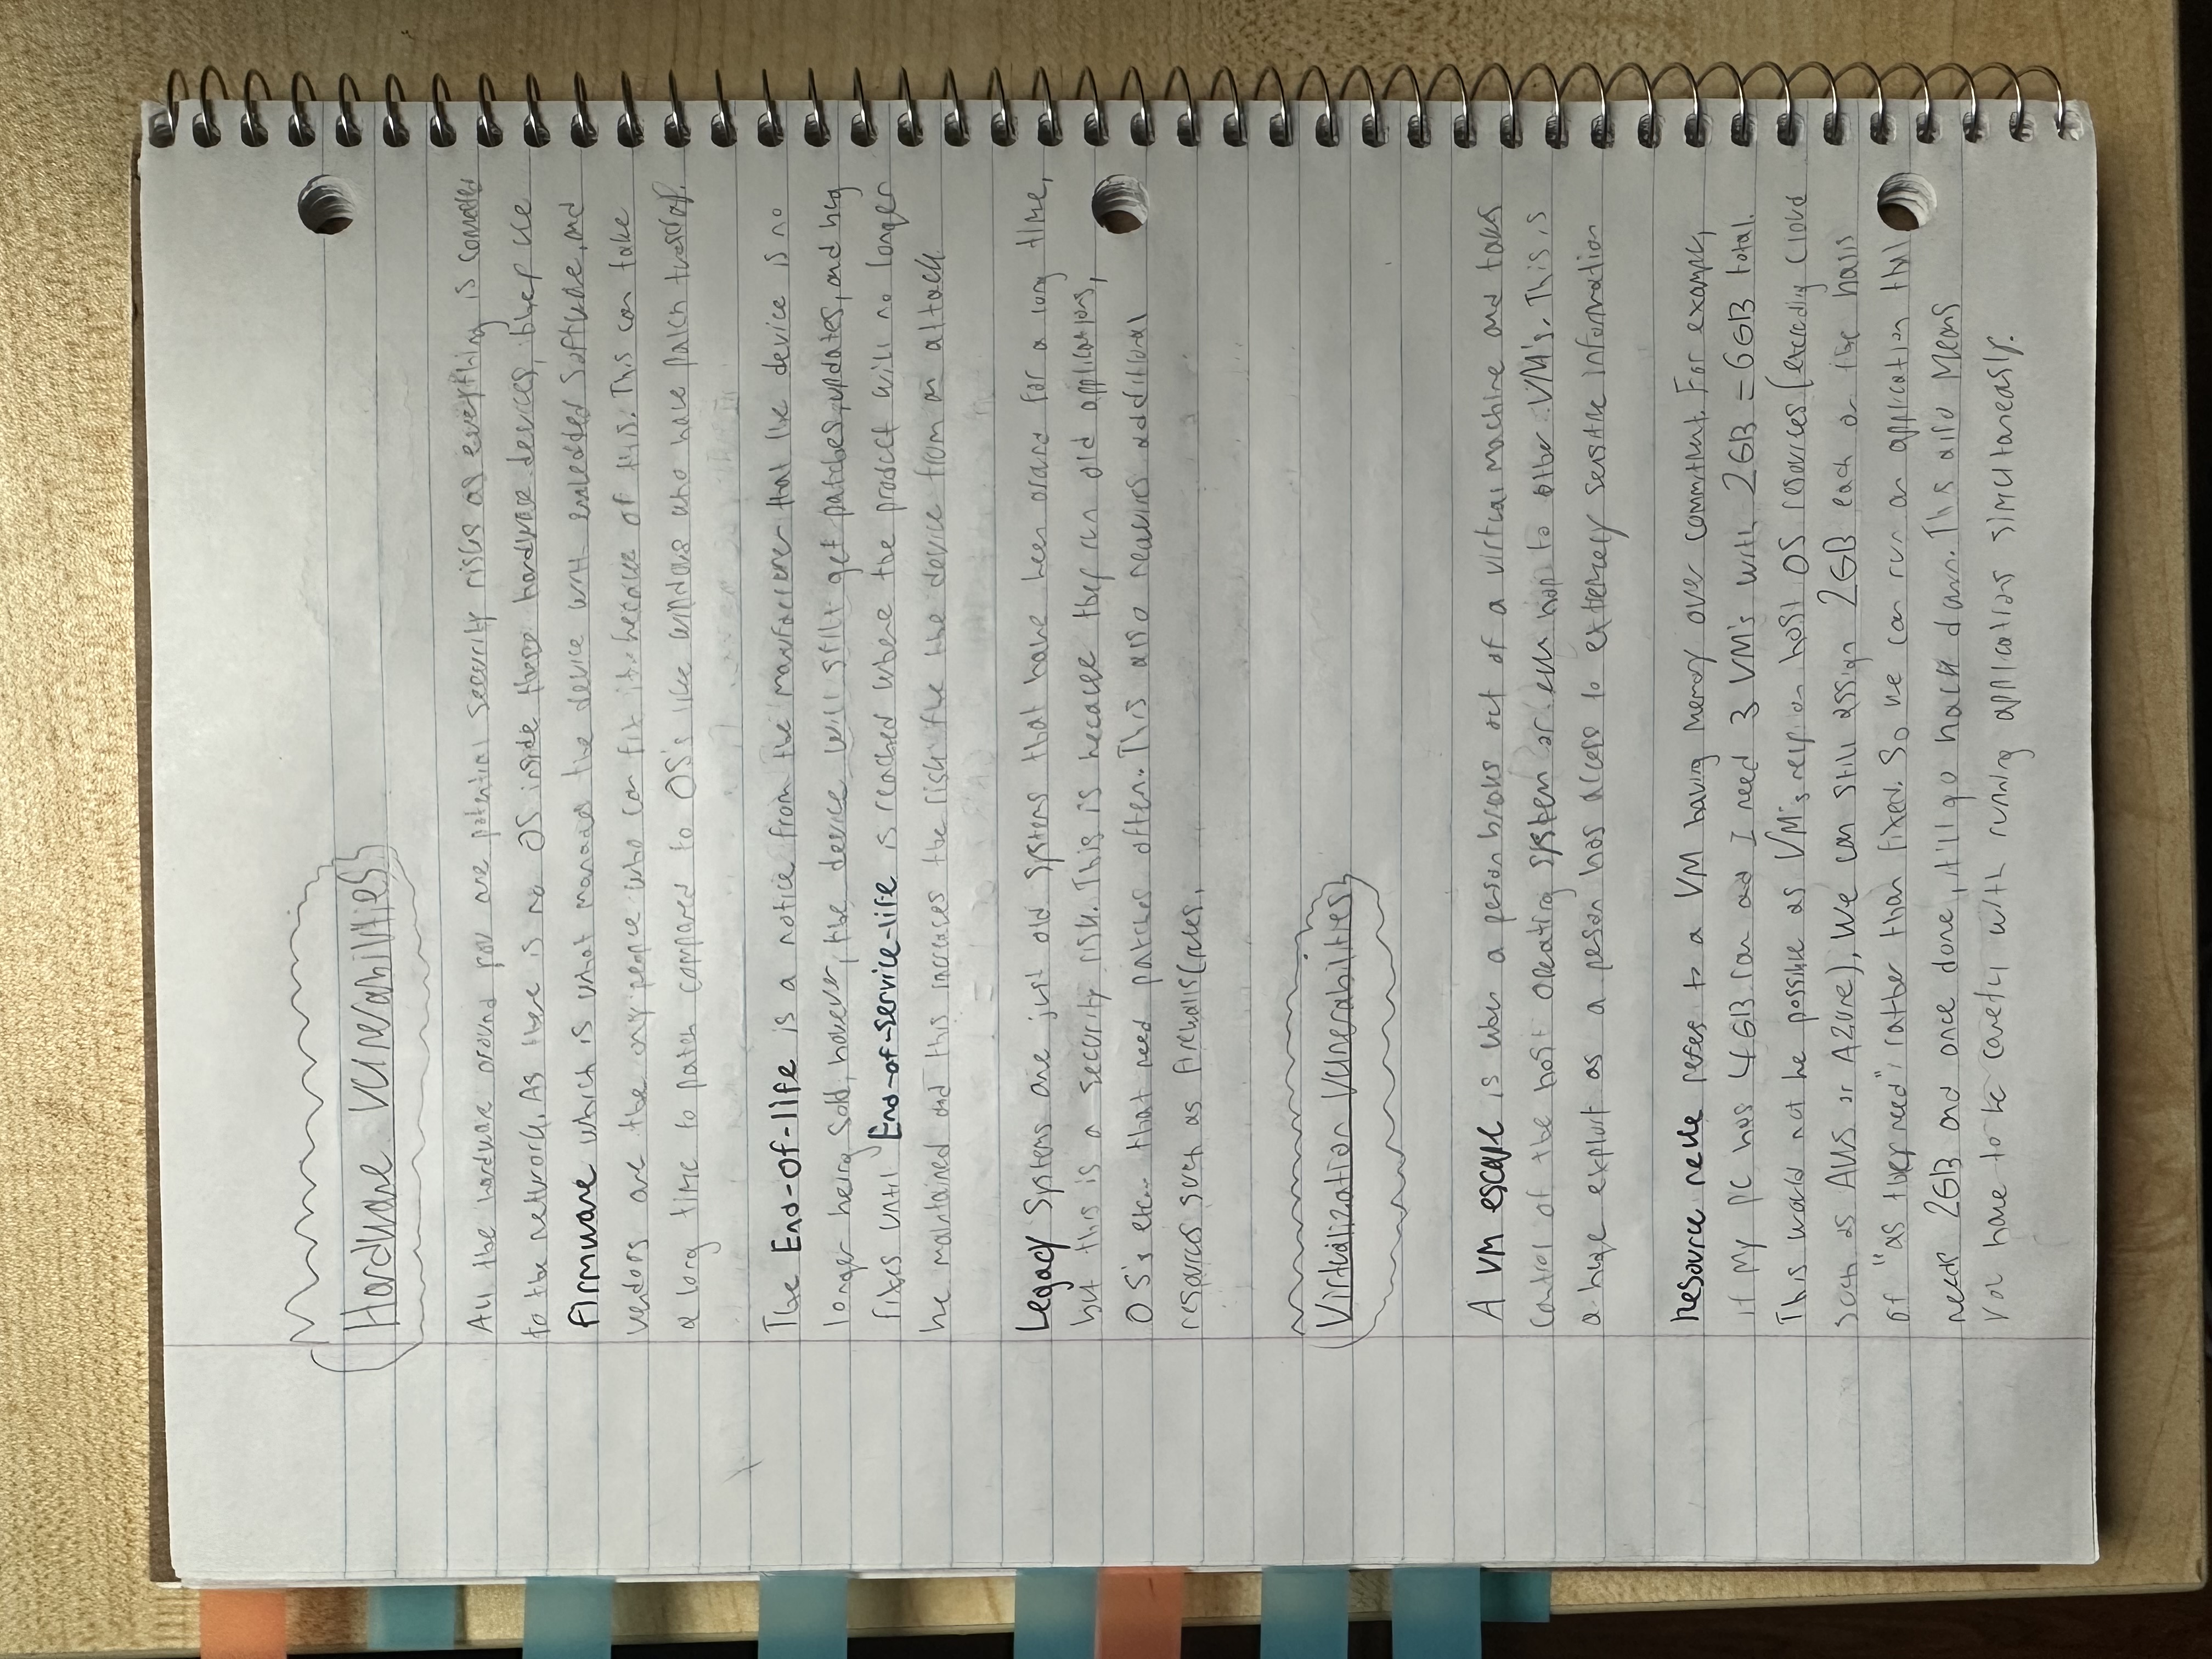 Hardware Vulnerabilities
All the hardware around you are potential security risks as everything is connected
to the network. As there is no OS inside these hardware devices, they use
firmware which is what manages the device with embedded software, and
vendors are the only people who can fix it because of this. This can take
a long time to patch compared to OS's like windows who have patch tuesday.
The End-of-life is a notice from the manufacturer that the device is no
longer being sold, however, the device will still get patches, updates, and bug
fixes until End-of-service-life is reached where the product will no longer
be maintained and this increases the risk the the device from an attack
Legacy systems are just old systems that have been around for a long time,
but this is a security risk. This is because they run old applications,
OS's etc... that need patches often. This also requires additional
resources such as firewalls rules.
Virtualization Vulnerabilities
A VM escape is when a person breaks out of a virtual machine and takes
control of the host operating system or even hop to other VM's. This is
a huge exploit as a person has access to extremely sensitive information
Resource reuse refers to a VM having memory over commitment. For example,
if my PC has 4GB ram and I need 3 VM's with 2GB = 6GB total.
This would not be possible as VM's rely on host OS resources (excluding cloud
such as AWS or Azure), We can still assign 2GB each on the basis
of "as they need", rather than fixed. So we can run an application that
needs 2GB and once done, it'll go back down. This also means
you have to be careful with running applications simultaneously.